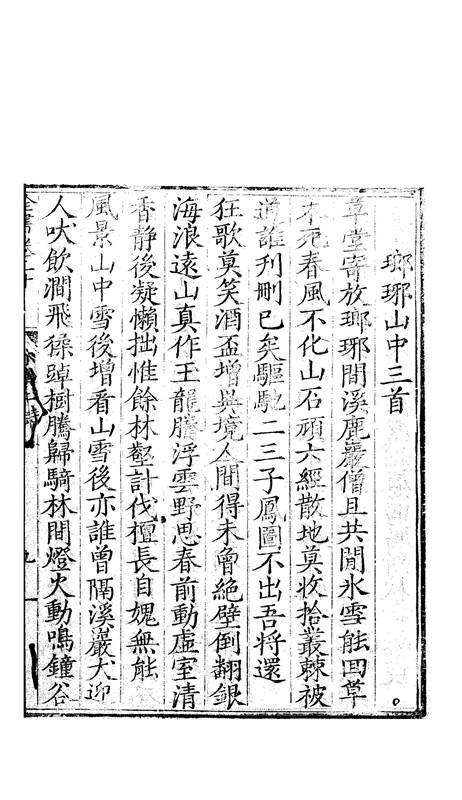 瑯琊山中三首
草堂寄放瑯琊間溪鹿巖僧且共閒氷雪能回草
木死春風不化山石頑六經散地莫收拾叢棘被
道誰刋刪已矣驅馳二三子鳳圖不出吾將還
狂歌莫笑酒盃增異境人間得未曾絶壁倒翻銀
海浪遠山真作玉龍騰浮雲野思春前動虛室清
香静後凝懶拙惟餘林壑計伐檀長自媿無能
風景山中雪後增看山雪後亦誰曾隔溪巖犬迎
人吠飲澗飛猱踔樹騰歸騎林間燈火動鳴鐘谷